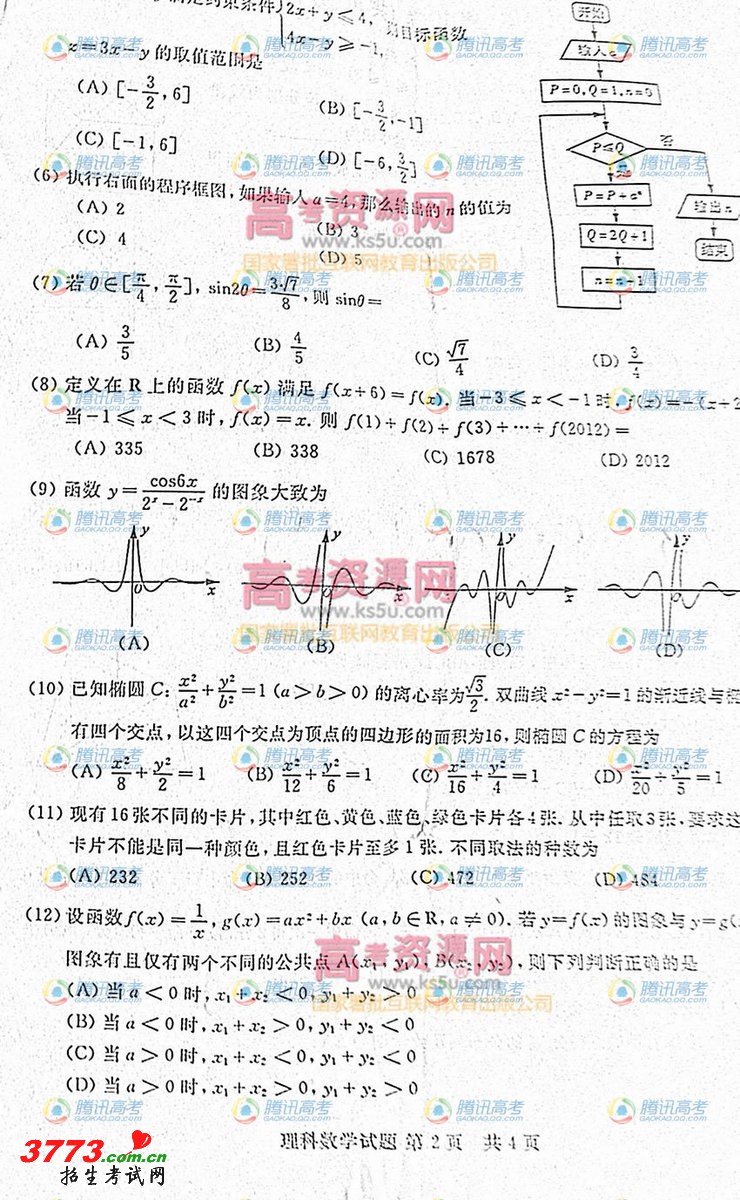 束条件 2x+y≤4, 则目标函数
4x-y≥-1,
z=3x-y 的取值范围是
(A) [-3/2,6]
(B) [-3/2,-1]
(C) [-1,6]
(D) [-6,3/2]
开始
输入a
P=0,Q=1,n=0
P≤Q
否
是
P=P+aⁿ
输出n
Q=2Q+1
结束
n=n+1
(6) 执行右面的程序框图,如果输入a=4,那么输出的n的值为
(A) 2
(B) 3
(C) 4
(D) 5
(7) 若θ∈[π/4,π/2], sin2θ=3√7/8,则 sinθ=
(A) 3/5 (B) 4/5 (C) √7/4 (D) 3/4
(8) 定义在 R 上的函数 f(x) 满足 f(x+6)=f(x). 当-3≤x<-1时, f(x)=-(x+2
当-1≤x<3时, f(x)=x. 则 f(1)+f(2)+f(3)+…+f(2012)=
(A) 335 (B) 338 (C) 1678 (D) 2012
(9) 函数 y=cos6x/(2ˣ-2⁻ˣ) 的图象大致为
y y y y
O x O x O x O
(A) (B) (C) (D)
(10) 已知椭圆 C: x²/a²+y²/b²=1 (a>b>0) 的离心率为√3/2. 双曲线 x²-y²=1 的渐近线与
有四个交点,以这四个交点为顶点的四边形的面积为16,则椭圆 C 的方程为
(A) x²/8+y²/2=1 (B) x²/12+y²/6=1 (C) x²/16+y²/4=1 (D) x²/20+y²/5=1
(11) 现有16张不同的卡片,其中红色、黄色、蓝色、绿色卡片各4张. 从中任取3张, 要求这
卡片不能是同一种颜色,且红色卡片至多1张. 不同取法的种数为
(A) 232 (B) 252 (C) 472 (D) 484
(12) 设函数f(x)=1/x, g(x)=ax²+bx (a,b∈R,a≠0). 若y=f(x)的图象与y=g(
图象有且仅有两个不同的公共点 A(x₁,y₁), B(x₂,y₂), 则下列判断正确的是
(A) 当a<0时, x₁+x₂<0, y₁+y₂>0
(B) 当a<0时, x₁+x₂>0, y₁+y₂<0
(C) 当a>0时, x₁+x₂<0, y₁+y₂<0
(D) 当a>0时, x₁+x₂>0, y₁+y₂>0
理科数学试题 第2页 共4页
腾讯高考
GAOKAO.QQ.COM
高考资源网
www.ks5u.com
国家普批互联网教育出版公司
3773.com.cn
招生考试网